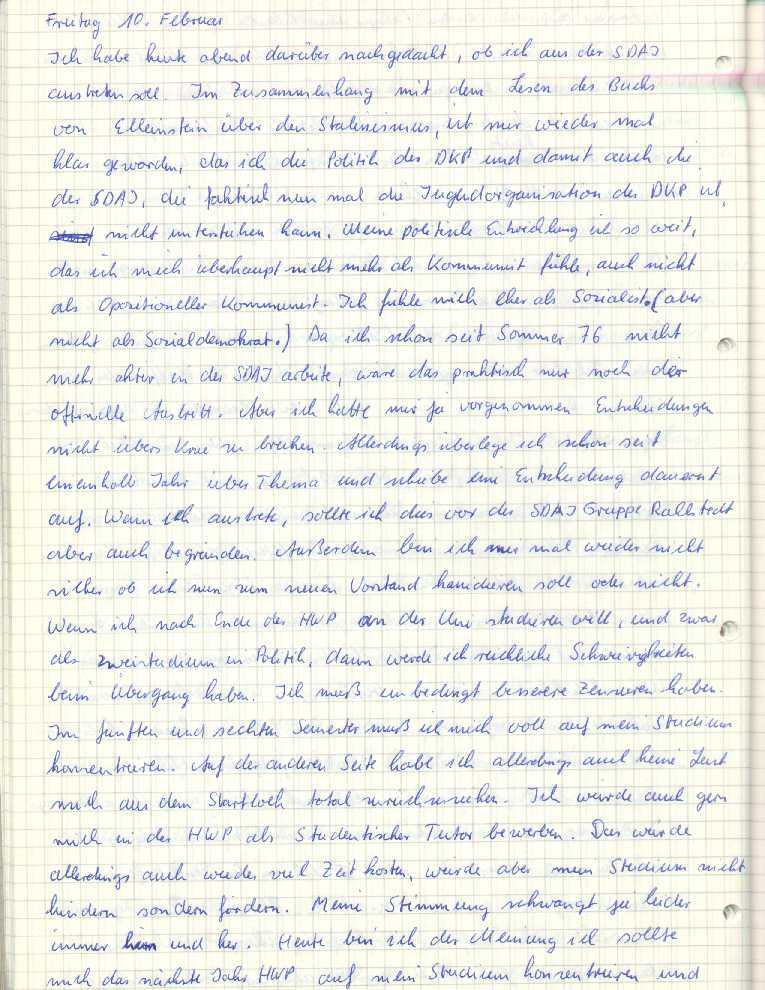 Freitag 10. Februar
Ich habe heute abend darüber nachgedacht, ob ich aus der SDAJ
austreten soll. Im Zusammenhang mit dem Lesen des Buchs
von Elleinstein über den Stalinismus, ist mir wieder mal
klar geworden, das ich die Politik der DKP und damit auch die
der SDAJ, die faktisch nun mal die Jugendorganisation der DKP ist,
nicht unterstützen kann. Meine politische Entwicklung ist so weit,
das ich mich überhaupt nicht mehr als Kommunist fühle, auch nicht
als Opositioneller Kommunist. Ich fühle mich eher als Sozialist. (aber
nicht als Sozialdemokrat.) Da ich schon seit Sommer 76 nicht
mehr aktiv in der SDAJ arbeite, wäre das praktisch nur noch der
offizielle Austritt. Aber ich hatte mir ja vorgenommen Entscheidungen
nicht übers Knie zu brechen. Allerdings überlege ich schon seit
einenhalb Jahr über Thema und schiebe eine Entscheidung dauernt
auf. Wann ich austrete, sollte ich dies vor der SDAJ Gruppe Rahlstedt
aber auch begründen. Außerdem bin ich mir mal wieder nicht
sicher ob ich nun zum neuen Vorstand kanidieren soll oder nicht.
Wenn ich nach Ende der HWP an der Uni studieren will, und zwar
als Zweistudium in Politik, dann werde ich reichliche Schwierigkeiten
beim Übergang haben. Ich muß unbedingt bessere Zensuren haben.
Im fünften und sechten Semester muß ich mich voll auf mein Studium
konzentrieren. Auf der anderen Seite habe ich allerdings auch keine Lust
mich aus dem Startloch total zurückzuziehen. Ich würde auch gern
mich in der HWP als Studentischer Tutor bewerben. Das würde
allerdings auch wieder viel Zeit kosten, würde aber mein Studium nicht
hindern sondern fördern. Meine Stimmung schwangt ja leider
immer hin und her. Heute bin ich der Meinung ich sollte
mich das nächste Jahr HWP auf mein Studium konzentrieren und